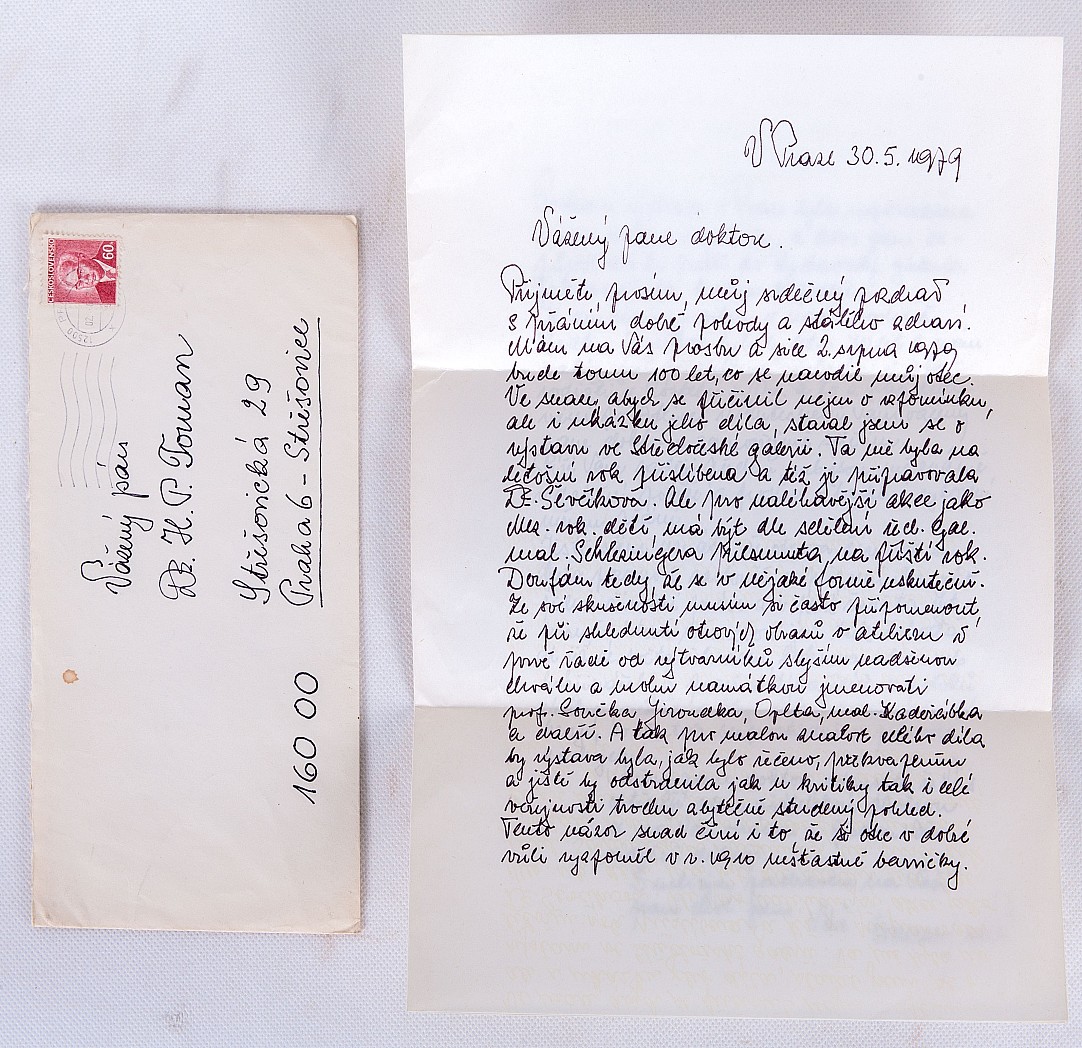 ČESKOSLOVENSKO
60
Vážený pán
Dr. H. P. Toman
Střešovická 29
Praha 6 - Střešovice
160 00
V Praze 30.5.1979
Vážený pane doktore.
Přijměte, prosím, můj srdečný pozdrav
s přáním dobré pohody a stálého zdraví.
Mám na Vás prosbu a sice 2. srpna 1979
bude tomu 100 let, co se narodil můj otec.
Ve snaze, abych se přičinil nejen o vzpomínku,
ale i ukázku jeho díla, staral jsem se o
výstavu ve Středočeské galerii. Ta mě byla na
letošní rok přislíbena a též ji připravovala
Dr. Ševčíková. Ale pro naléhavější akce jako
Mez. rok. dětí, má být dle sdělení řed. gal.
mal. Schlesingera přesunuta na příští rok.
Doufám tedy, že se v nějaké formě uskuteční.
Ze své skušenosti musím si často připomenout,
že při shlednutí otcových obrazů v atelieru v
prvé řadě od výtvarníků slyším nadšenou
chválu a mohu namátkou jmenovati
prof. Součka, Jiroudka, Oplta, mal. Kadeřábka
a další. A tak pro malou znalost celého díla
by výstava byla, jak bylo řečeno, překvapením
a jistě by odstranila jak u kritiky tak i celé
veřejnosti trochu zbytečně studený pohled.
Tento názor snad činí i to, že si otec v dobré
vůli vzpomněl v r. 1910 nešťastné barvičky.